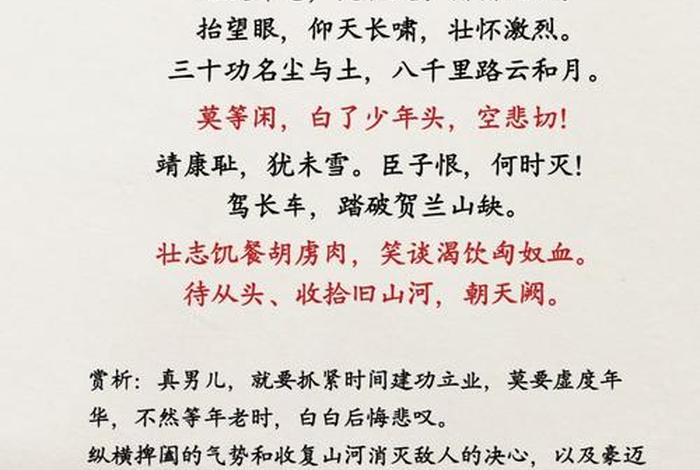 抬望眼，仰天长啸，壮怀激烈。
三十功名尘与土，八千里路云和月。
莫等闲，白了少年头，空悲切！
靖康耻，犹未雪。臣子恨，何时灭！
驾长车，踏破贺兰山缺。
壮志饥餐胡虏肉，笑谈渴饮匈奴血。
待从头、收拾旧山河，朝天阙。
赏析：真男儿，就要抓紧时间建功立业，莫要虚度年
华，不然等年老时，白白后悔悲叹。
纵横捭阖的气势和收复山河消灭敌人的决心，以及豪迈